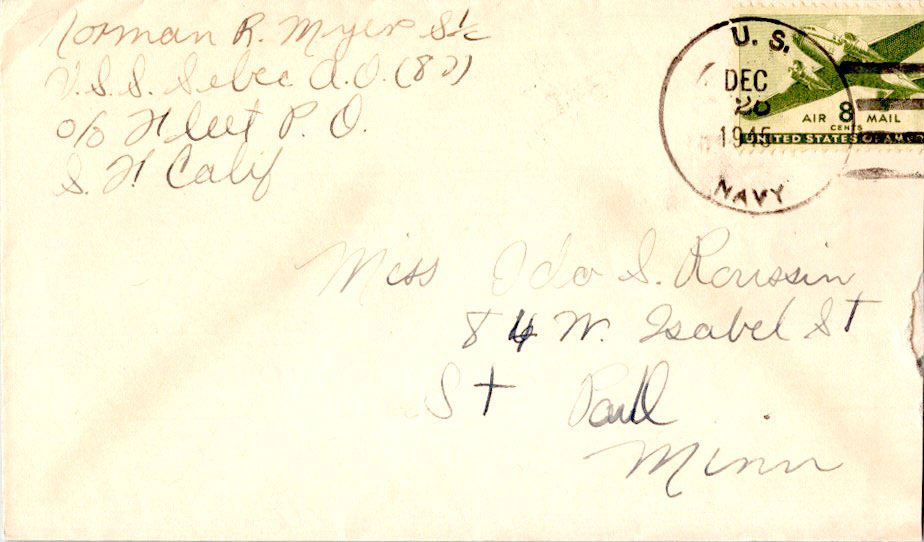 Norman R. Myers S1/c
U.S.S. Sebec A.O. (87)
c/o Fleet P. O.
S. F. Calif
U. S.
DEC
20
1945
NAVY
AIR 8 MAIL
CENTS
UNITED STATES OF AMERICA
Miss Ida S. Roussin
84 W. Isabel St
St Paul
Minn